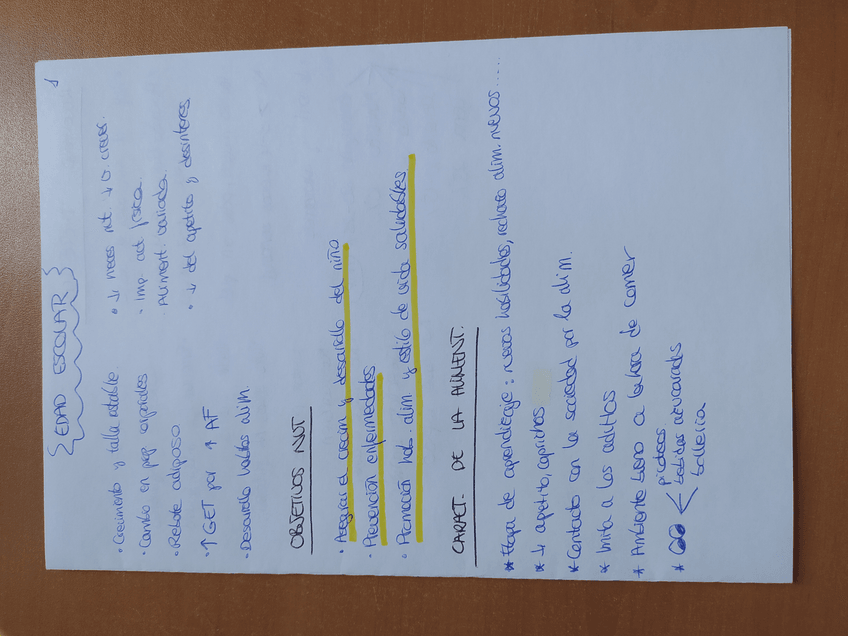 EDAD ESCOLAR
1
• Crecimiento y talla estable.
• Cambio en prop corporales
• Rebote adiposo
• ↑ GET por ↑ AF
• Desarrollo hábitos alim.
• ↓ neces nut ↓ O. crecim.
• Imp. act física.
Aliment. variada.
• ↓ del apetito y desinterés
OBJETIVOS NUT
• Asegurar el crecim y desarrollo del niño
• Prevención enfermedades
• Promoción hab. alim y estilo de vida saludables
CARACT. DE LA ALIMENT.
* Etapa de aprendizaje: nuevas habilidades, rechazo alim. nuevos.....
* ↓ apetito, caprichos
* Contacto con la sociedad por la alim.
* Imita a los adultos
* Ambiente bueno a la hora de comer
* picoteos
bebidas azucaradas
bollería